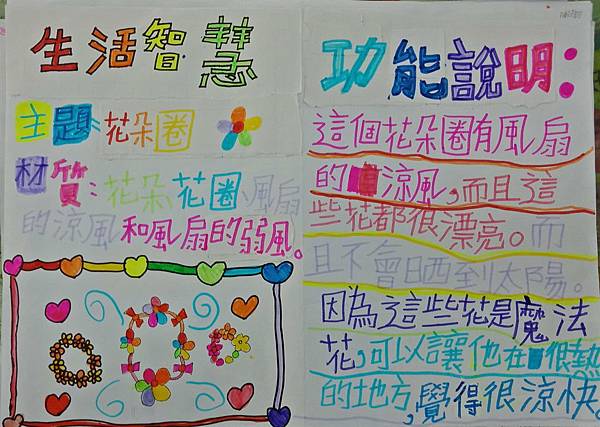 生活智慧
主題：花朵圈
材質：花朵、花圈、風扇
的涼風和風扇的弱風。
功能說明：
這個花朵圈有風扇
的涼風，而且這
些花都很漂亮。而
且不會晒到太陽。
因為這些花是魔法
花，可以讓他在很熱
的地方，覺得很涼快。